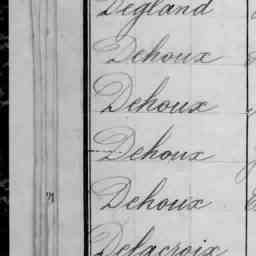 Degland
Dehoux
Dehoux
Dehoux
Dehoux
Delacroix